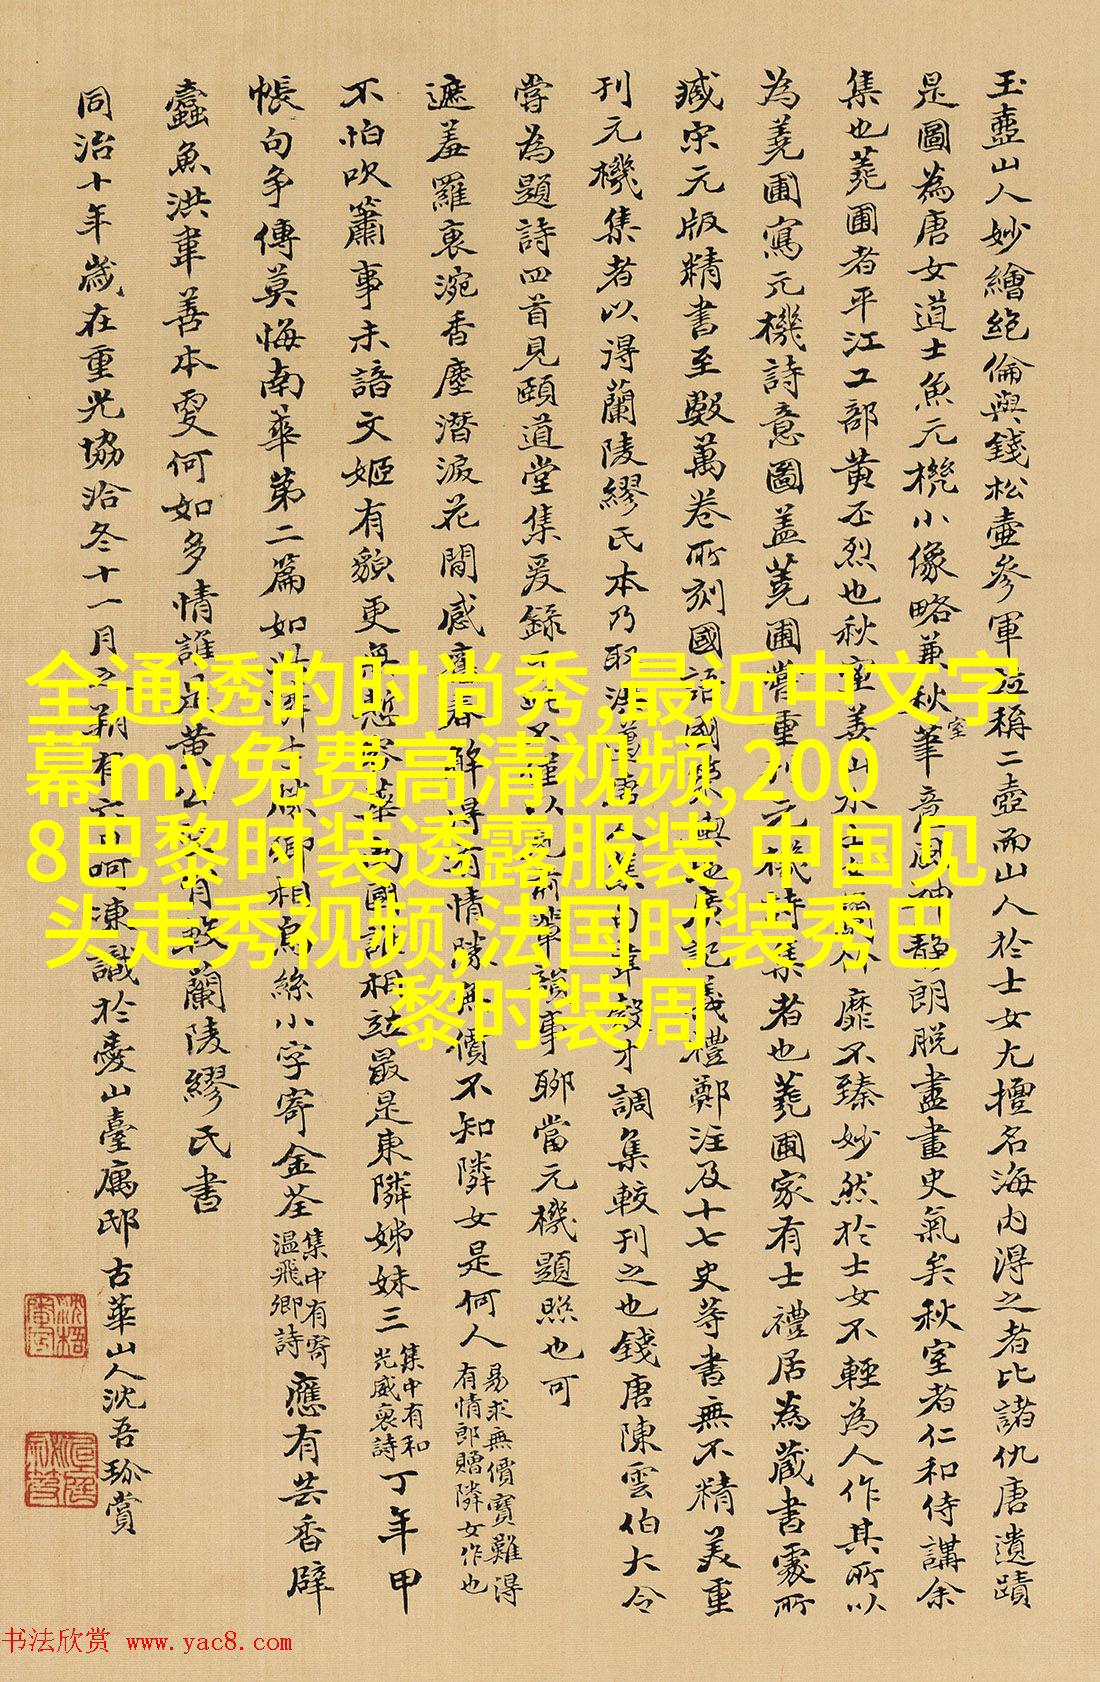 玉壺山人妙繪絕倫與錢松壺參軍並稱二壺而山人於士女尤擅名海內得之者比諸仇唐遺蹟
是圖為唐女道士魚元機小像略兼秋室筆意閒神靜朗脫盡畫史氣矣秋室者仁和侍講余
集也蕘圃者平江工部黃丕烈也秋室善山水 靡不臻妙然於士女不輕為人作其所以
為蕘圃寫元機詩意圖蓋蕘圃嘗重刊元機詩集者也蕘圃家有士禮居為藏書處所
臧宋元版精書至數萬卷所刻國語國策 儀禮鄭注及十七史等書無不精美重
刊元機集者以得蘭陵繆氏本乃取 唐人集 才調集較刊之也錢唐陳雲伯大令
嘗為題詩四首見頤道堂集爰錄 以見前輩韻事聊當元機題照也可
遮羞羅裹涴香塵潛淚花間感舊春解得有情勝無價不知隣女是何人 易求無價寶難得有情郎贈隣女作也
不怕吹簫事未諳文姬有貌更無慙 南國誰相並最是東隣姊妹三 集中有和光威裒詩 丁年甲
帳句爭傳莫悔南華第二篇如 卿相烏絲小字寄金荃 集中有寄溫飛卿詩 應有芸香辟
蠹魚洪韋善本更何如多情誰 黃 蘭陵繆氏書
同治十年歲在重光協洽冬十一月之朔有六日呵凍識於臺山臺寓邸古華山人沈吾珎賞
全通透的时尚秀,最近中文字
幕mv免费高清视频,200
8巴黎时装透露服装,中国见
头走秀视频,法国时装秀巴
黎时装周
书法欣赏 www.yac8.com